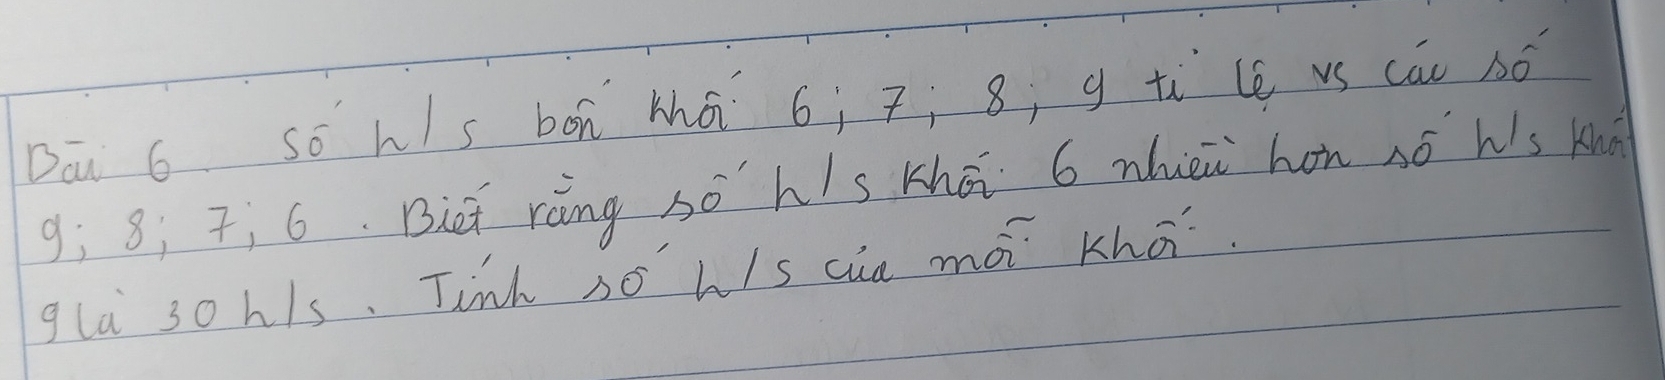 Bài 6. Số h/s bốn khối 6; 7; 8; 9 tỉ lệ vs các số
9; 8; 7; 6. Biết rằng số h/s khối 6 nhiều hơn số h/s khối
9 là 30 h/s. Tính số h/s của mỗi khối.